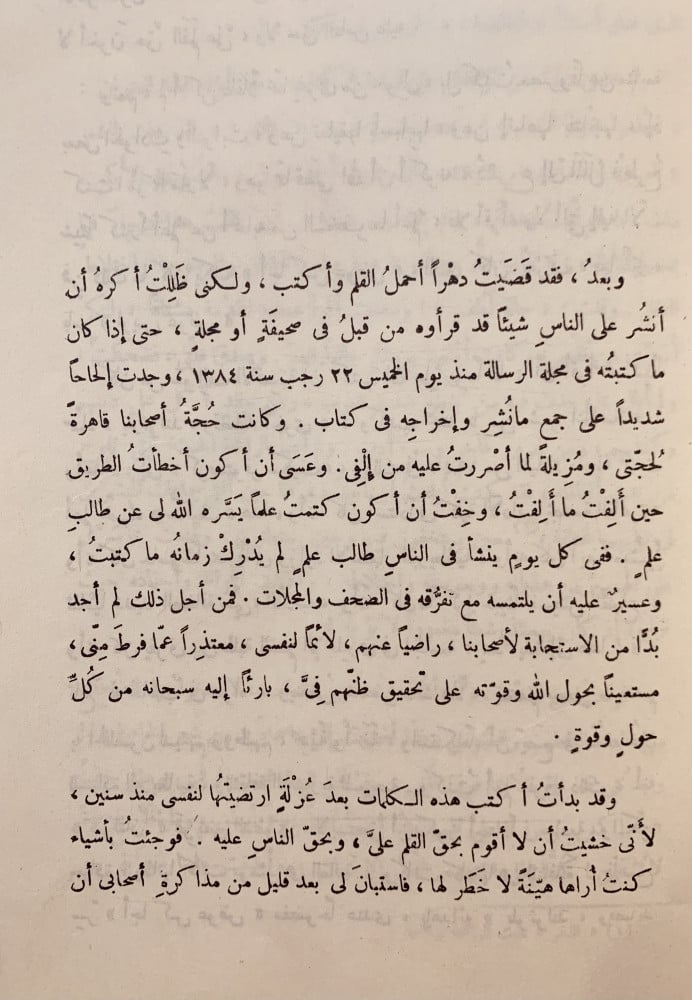 وبعدُ ، فقد قَضَيتُ دهْراً أحملُ القلم وأكتب ، ولكنى ظَلِلْتُ أكرهُ أن
أنشُر على الناسِ شيئاً قد قرأوه من قبلُ فى صحيفَةٍ أو مجلةٍ ، حتى إذا كان
ما كتبتُه فى مجلة الرسالة منذ يوم الخميس ٢٢ رجب سنة ١٣٨٤ ، وجدت إلحاحاً
شديداً على جمع مانُشِر وإخراجِه فى كتاب . وكانت حُجَّةُ أصحابنا قاهرةً
لحجّتى ، ومُزِيلةً لما أصْررتُ عليه من إلْفِى. وعَسَى أن أكون أخطأتُ الطريق
حين أَلِفْتُ ما أَلِفْتُ ، وخِفْتُ أن أكون كتمتُ علماً يَسَّره الله لى عن طالبِ
علمٍ . ففى كل يومٍ ينشأ فى الناسِ طالب علمٍ لم يُدْرِكْ زمانُه ما كتبتُ ،
وعسيرٌ عليه أن يلتمسه مع تفرُّقه فى الصحف والمجلات . فمن أجل ذلك لم أجد
بُدًّا من الاستجابة لأصحابنا ، راضياً عنهم ، لائماً لنفسى ، معتذِراً عمّا فرطَ مِنّى ،
مستعيناً بحول الله وقوّته على تحقيق ظنّهم فِىَّ ، بارئًا إليه سبحانه من كُلِّ
حولٍ وقوةٍ .
وقد بدأتُ أكتب هذه الكلمات بعدَ عُزْلَةٍ ارتضيتُها لنفسى منذ سنين ،
لأَنّى خشيتُ أن لا أقوم بحقّ القلم علىَّ ، وبحقّ الناسِ عليه . فوجئتُ بأشياء
كنتُ أراها هيّنَةً لا خَطَر لها ، فاستبانَ لى بعد قليل من مذاكرةِ أصحابى أن